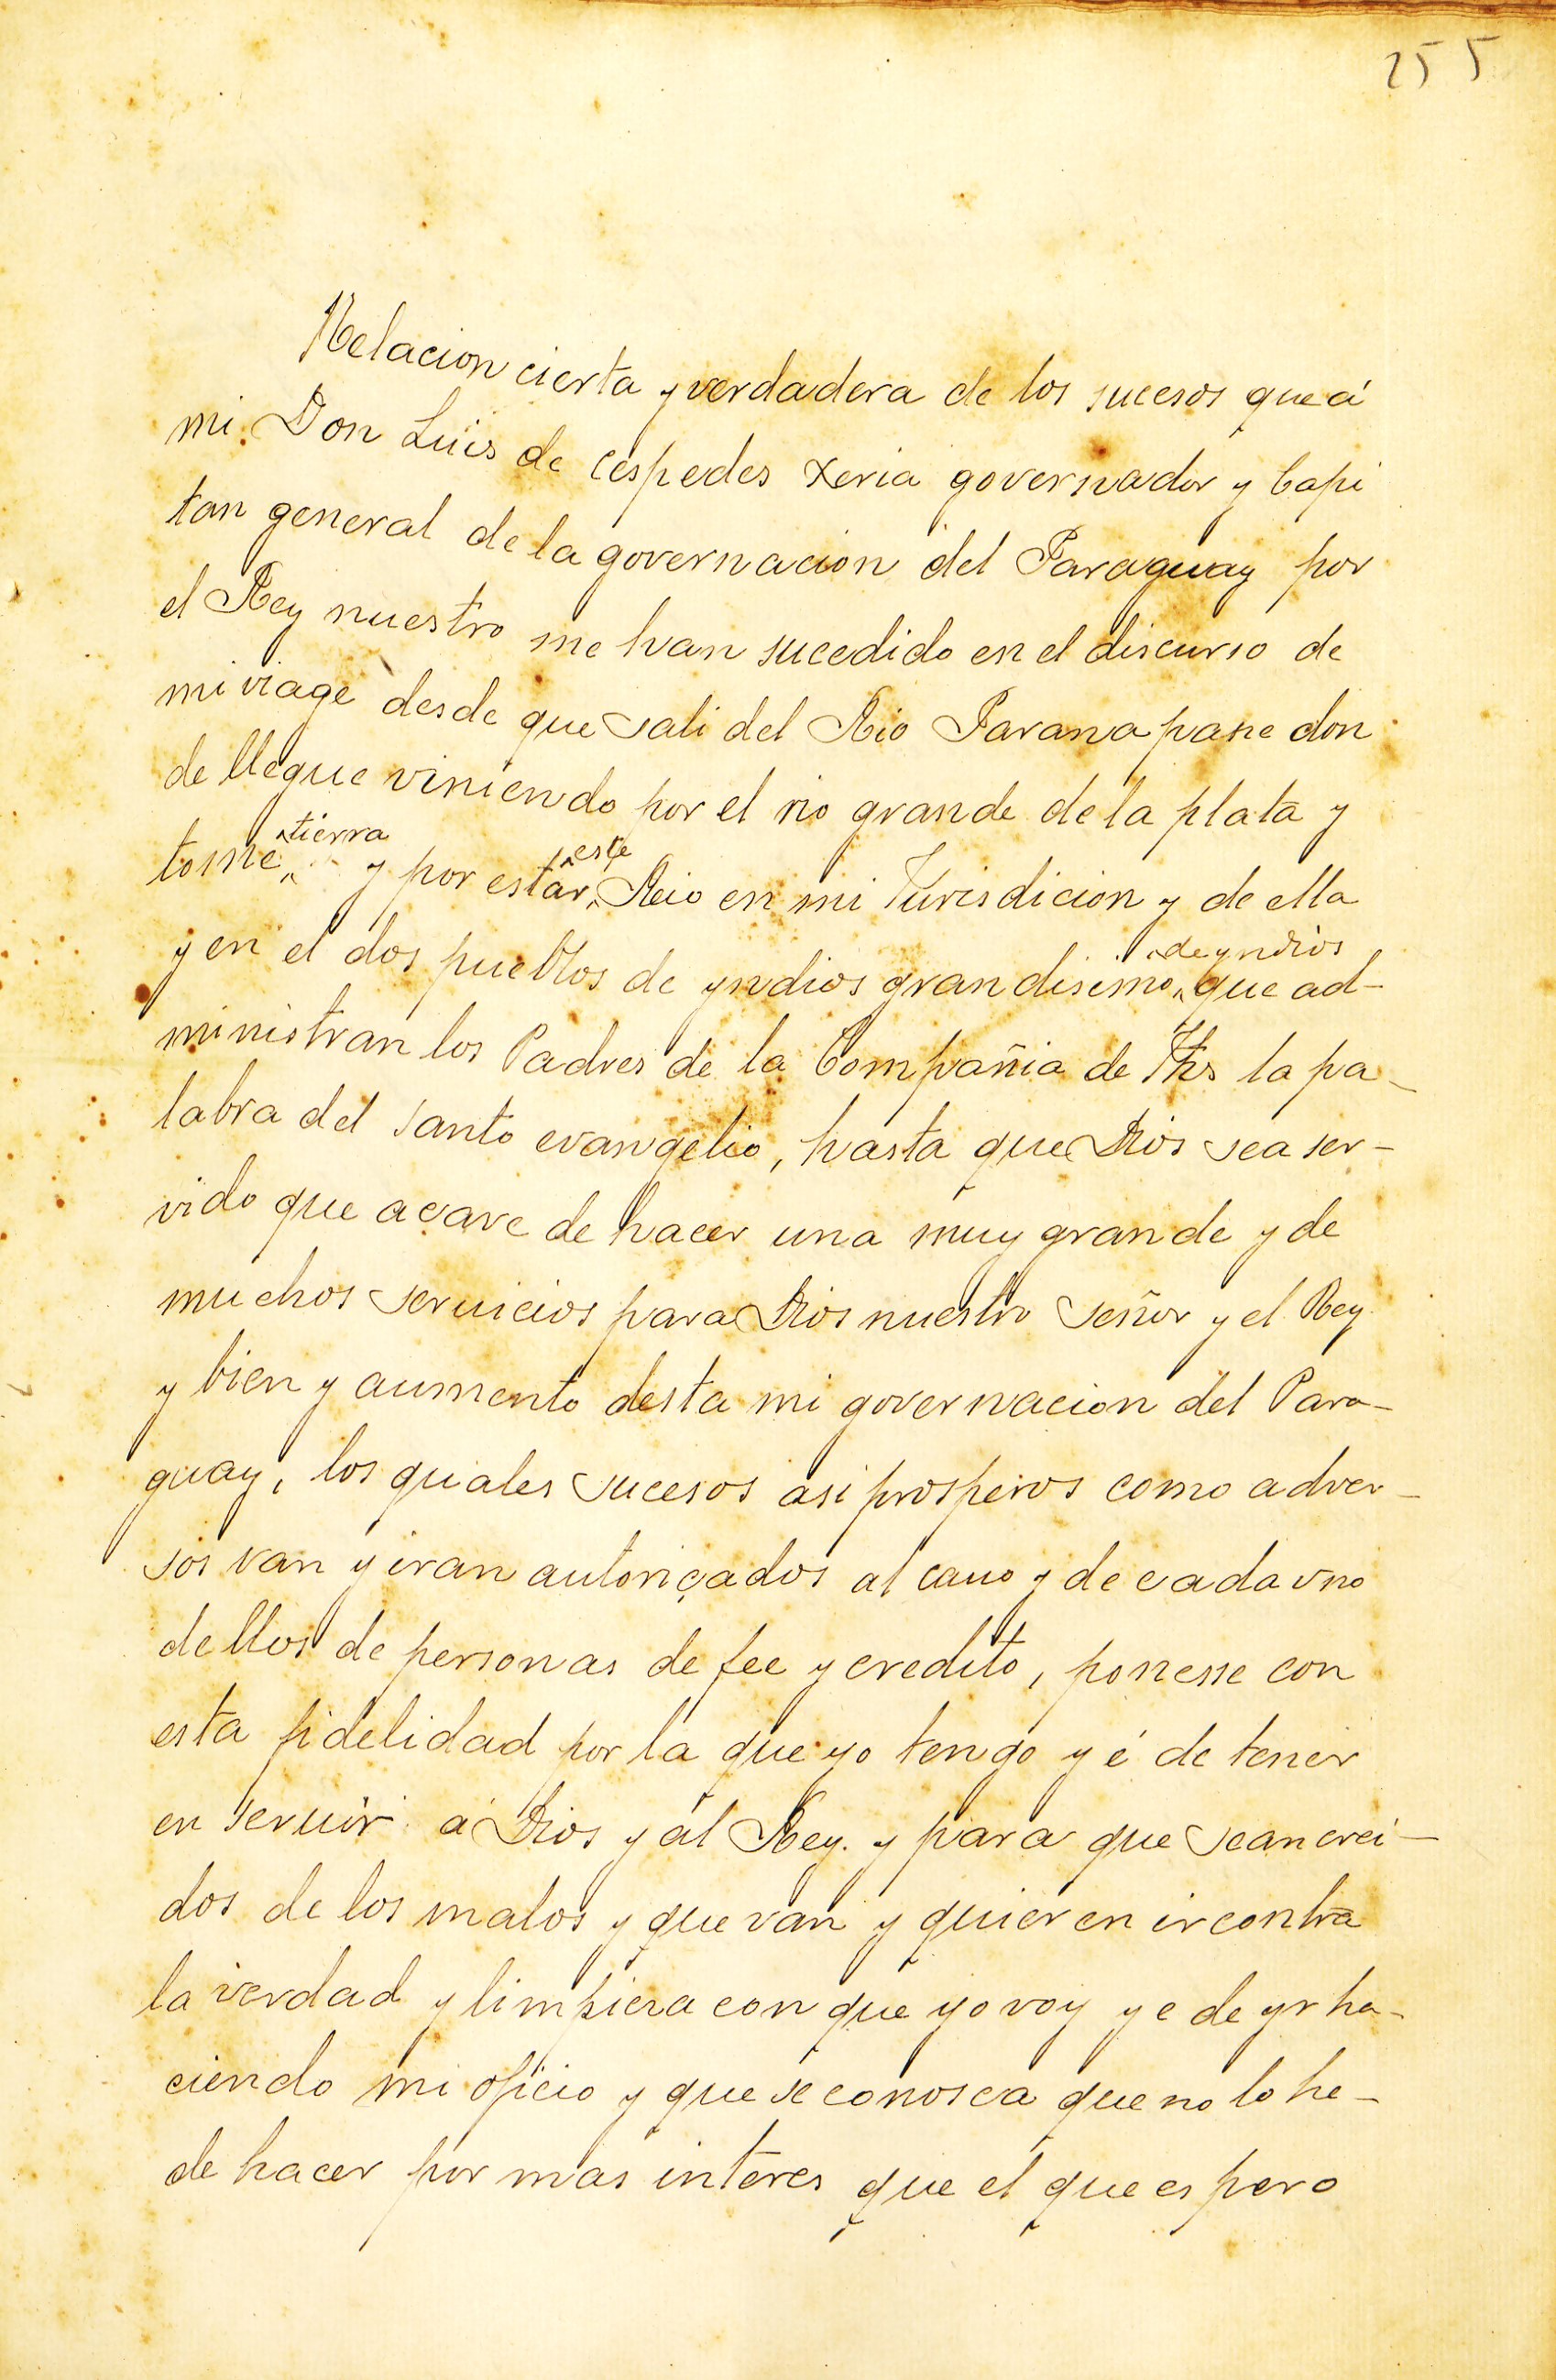 255
Relacion cierta y verdadera de los sucesos que á
mi Don Luis de cespedes xeria governador y Capi
tan general de la governacion del Paraguay por
el Rey nuestro me han sucedido en el discurso de
mi viage desde que sali del Rio Paranapane don
de llegue viniendo por el rio grande de la plata y
tome tierra y por estar este Rio en mi Jurisdicion y de ella
y en el dos pueblos de yndios grandisimo de yndios que ad-
ministran los Padres de la Compañia de Jhs la pa-
labra del santo evangelio, hasta que Dios sea ser-
vido que acave de hacer una muy grande y de
muchos seruicios para Dios nuestro señor y el Rey
y bien y aumento desta mi governacion del Para-
guay, los quales sucesos asi prosperos como adver-
sos van y iran autoriçados al cauo y de cada vno
dellos de personas de fee y credito, ponesse con
esta fidelidad por la que yo tengo y é de tener
en seruir á Dios y al Rey. y para que sean crei-
dos de los malos y que van y quieren ir contra
la verdad y limpieza con que yo voy y e de yr ha-
ciendo mi oficio y que se conosca que no lo he-
de hacer por mas interes que el que espero